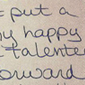 put a
y happy
talente
orward